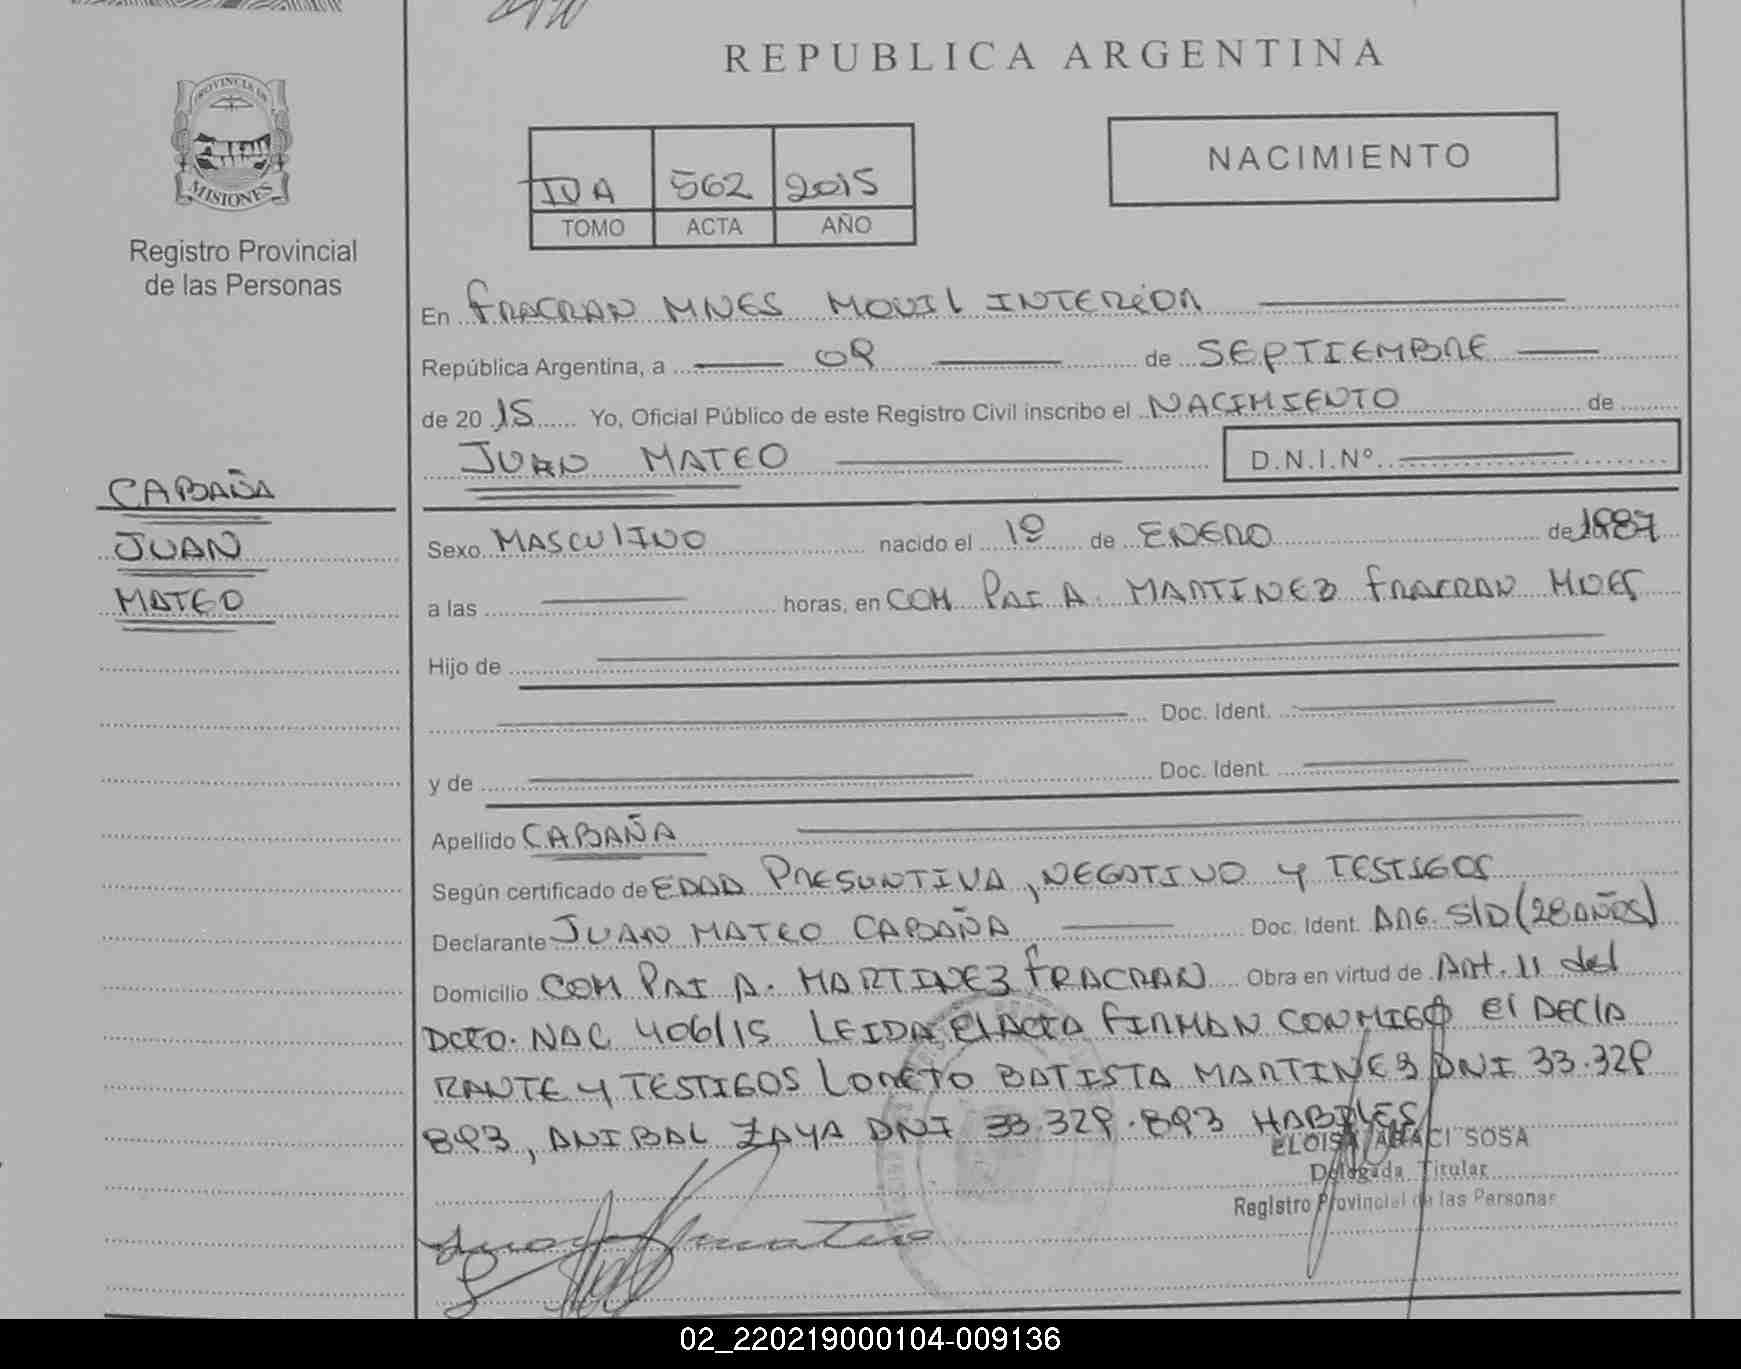 REPUBLICA ARGENTINA
PROVINCIA DE
MISIONES
Registro Provincial
de las Personas
NACIMIENTO
IVA 562 2015
TOMO ACTA AÑO
En FRACRAN MNES MOVIL INTERIOR
República Argentina, a 09 de SEPTIEMBRE
de 2015 Yo, Oficial Público de este Registro Civil inscribo el NACIMIENTO de
JUAN MATEO D.N.I.Nº
CABAÑA
JUAN
MATEO
Sexo MASCULINO nacido el 1º de ENERO de 1987
a las horas, en COM PAI A. MARTINEZ FRACRAN
Hijo de
Doc. Ident.
y de Doc. Ident.
Apellido CABAÑA
Según certificado de EDAD PRESUNTIVA, NEGATIVO Y TESTIGOS
Declarante JUAN MATEO CABAÑA Doc. Ident. ARG. S/D (28 AÑOS)
Domicilio COM PAI A. MARTINEZ FRACRAN Obra en virtud de Art. 11 del
DCTO. NAC 406/15 LEIDA EL ACTA FIRMAN CONMIGO El DECLA
RANTE Y TESTIGOS LORETO BATISTA MARTINEZ DNI 33.329
893, ANIBAL ZAYA DNI 33.329.893 HABILES
ELOISA SOSA
Delegada Titular
Registro Provincial de las Personas
02_220219000104-009136